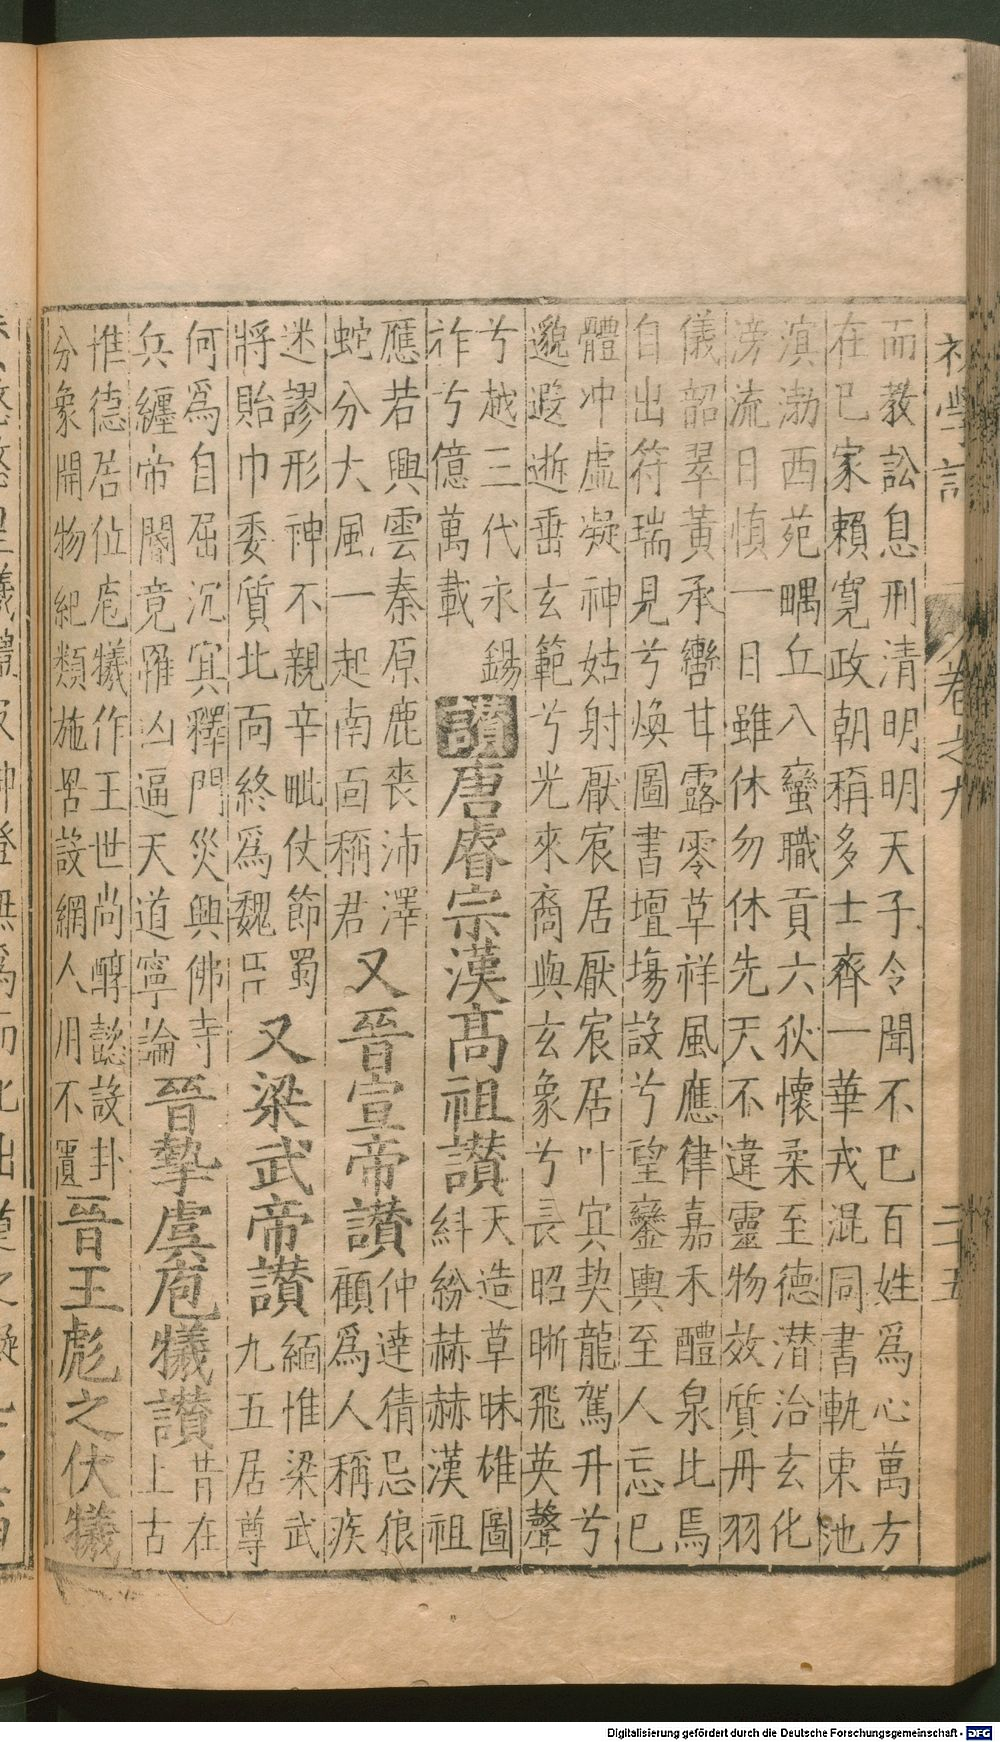 而教訟息刑清明明天子令聞不已百姓爲心萬方
在巳家賴寬政朝稱多士齊一華戎混同書軌東池
滇渤西苑嵎丘八蠻職貢六狄懷柔至德潜治玄化
滂流日慎一日雖休勿休先天不違靈物效質丹羽
儀韶翠黃承轡甘露零草祥風應律嘉禾醴泉比焉
自出符瑞見兮煥圖書壇塲設兮望鑾輿至人忘巳
體冲虛凝神姑射厭宸居厭宸居叶㝠契龍駕升兮
邈遐逝垂玄範兮光來裔與玄象兮長昭晰飛英聲
兮越三代永錫
祚兮億萬載
讃唐睿宗漢高祖讃
天造草昧雄圖
紏紛赫赫漢祖
應若興雲秦原鹿喪沛澤
蛇分大風一起南面稱君
又晉宣帝讃
仲達猜忌狼
顧爲人稱疾
迷謬形神不親辛毗仗節蜀
將貽巾委質北面終爲魏臣
又梁武帝讃
緬惟梁武
九五居尊
何爲自屈沉㝠釋門災興佛寺
兵纏帝闈竟罹凶逼天道寧論
晉摯虞庖犧讃
昔在
上古
惟德居位庖犧作王世尚醇懿設卦
分象開物紀類施罟設網人用不匱
晉王彪之伏犧
初學記
卷之九
二五
Digitalisierung gefördert durch die Deutsche Forschungsgemeinschaft - DFG